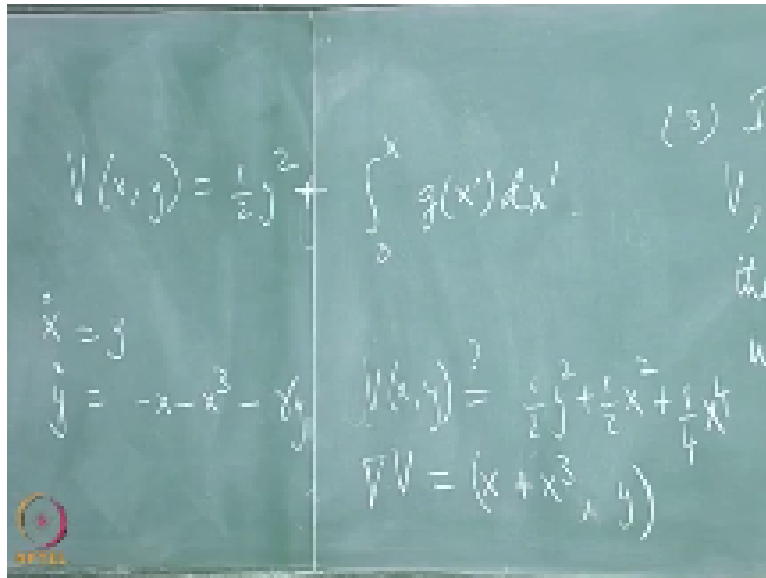 V(x,y) = ½y² + ∫₀ˣ g(x')dx'
(3)
V,
ẋ = y
ẏ = -x-x³-γy
V(x,y) ?= ½y²+½x²+¼x⁴
∇V = (x+x³, y)
NPTEL